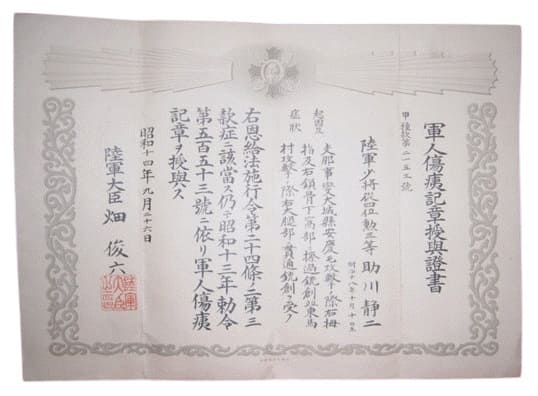 軍人傷痍記章授與證書
甲種授第二一五二號
陸軍少將從四位勲三等 助川靜二
明治十八年十月十日生
起因及症狀
支那事變大城縣安慶屯攻擊ノ際右拇
指及右鎖骨下高部ニ擦過銃創北東馬
村攻擊ノ際右大腿部ニ貫通銃創ヲ受ク
右恩給法施行令第二十四條ノ二第三
款症ニ該當ス仍テ昭和十三年勅令
第五百五十三號ニ依リ軍人傷痍
記章ヲ授與ス
昭和十四年九月二十六日
陸軍大臣 畑 俊六
陸軍大臣之印